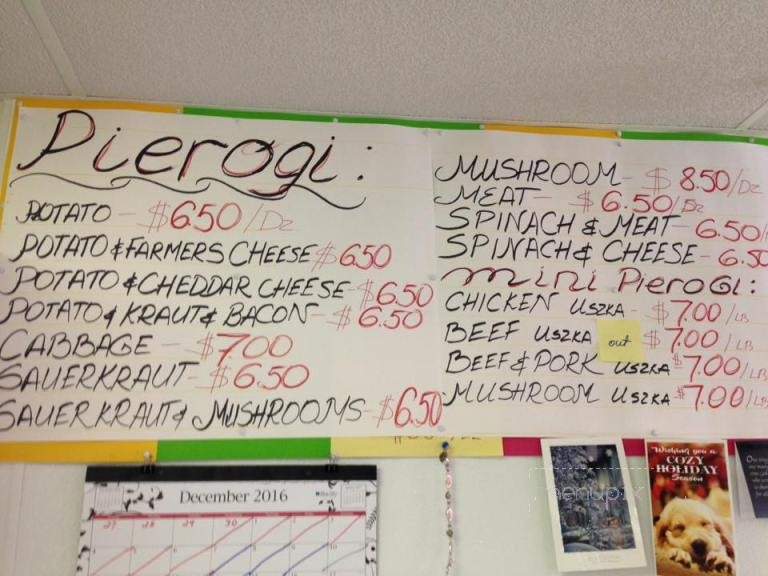 Pierogi:
POTATO - $6.50/Dz
POTATO & FARMERS CHEESE $6.50
POTATO & CHEDDAR CHEESE $6.50
POTATO & KRAUT & BACON - $6.50
CABBAGE - $7.00
SAUERKRAUT - $6.50
SAUERKRAUT & MUSHROOMS - $6.50
MUSHROOM - $8.50/Dz
MEAT - $6.50/Dz
SPINACH & MEAT - 6.50/
SPINACH & CHEESE - 6.50
mini Pierogi:
CHICKEN USZKA - $7.00/LB
BEEF USZKA out $7.00/LB
BEEF & PORK USZKA $7.00/LB
MUSHROOM USZKA $7.00/LB
December 2016
27 28 29 30
Wishing you a
COZY
HOLIDAY
Season
menupix